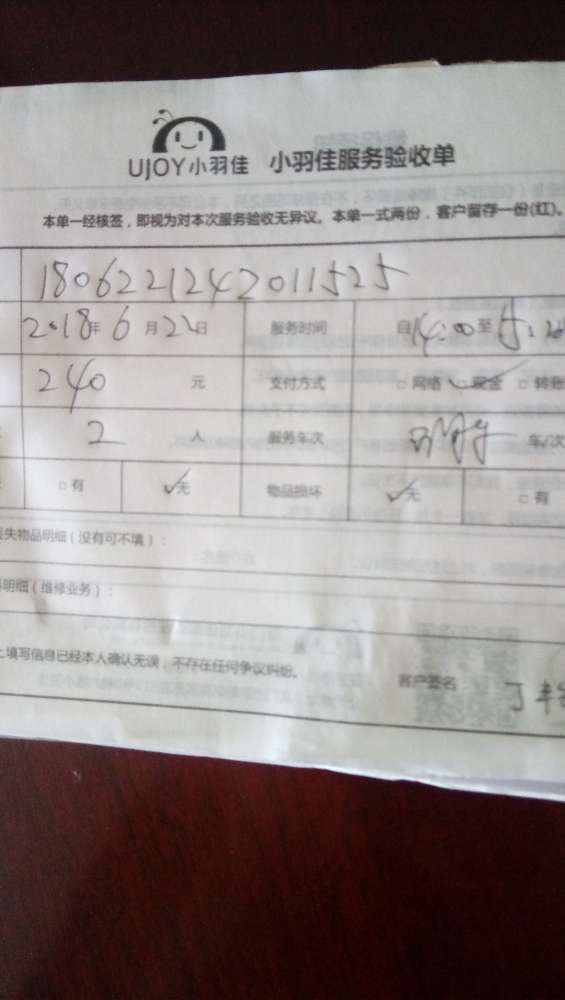 UJOY小羽佳 小羽佳服务验收单
本单一经核签，即视为对本次服务验收无异议。本单一式两份，客户留存一份(红)。
1806221242011525
2018年6月22日 服务时间 自14:00至
240 元 支付方式 □网络 ✓现金 □转账
2 人 服务车次 车/次
□有 ✓无 物品损坏 ✓无 □有
失物品明细（没有可不填）：
明细（维修业务）：
填写信息已经本人确认无误，不存在任何争议纠纷。 客户签名：丁